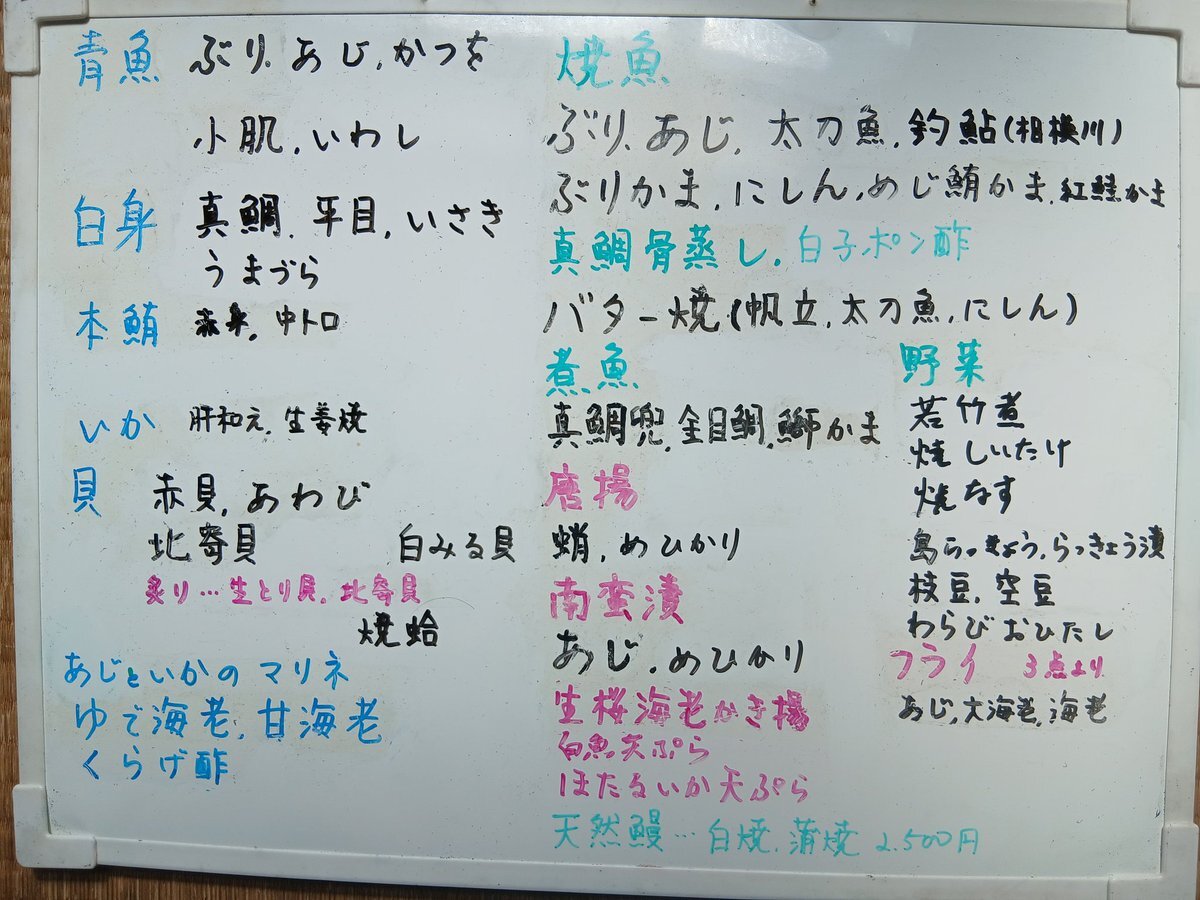 青魚 ぶり、あじ、かつを
小肌、いわし
白身 真鯛、平目、いさき
うまづら
本鮪 赤身、中トロ
いか 肝和え、生姜焼
貝 赤貝、あわび
北寄貝 白みる貝
炙り…生とり貝、北寄貝
焼蛤
あじといかのマリネ
ゆで海老、甘海老
くらげ酢
焼魚
ぶり、あじ、太刀魚、釣鮎(相模川)
ぶりかま、にしん、めじ鮪かま、紅鮭かま
真鯛骨蒸し、白子ポン酢
バター焼(帆立、太刀魚、にしん)
煮魚
真鯛兜、金目鯛、鰤かま
唐揚
蛸、めひかり
南蛮漬
あじ、めひかり
生桜海老かき揚
白魚天ぷら
ほたるいか天ぷら
天然鰻…白焼、蒲焼 2.500円
野菜
若竹煮
焼しいたけ
焼なす
島らっきょう、らっきょう漬
枝豆、空豆
わらびおひたし
フライ 3点より
あじ、大海老、海老